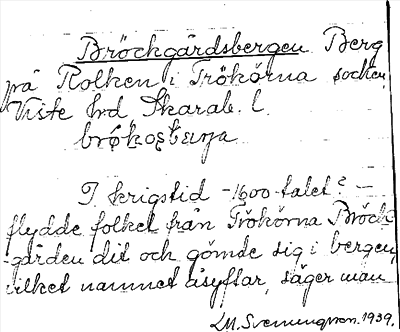 Bröckgårdsbergen Berg
på Kolken i Trökörna socken
Viste hrd, Skarab. l.
I krigstid - 1600-talet? -
flydde folket från Trökörna Bröck-
gården dit och gömde sig i bergen,
vilket namnet åsyftar, säger man
L.M. Svenungson. 1939.